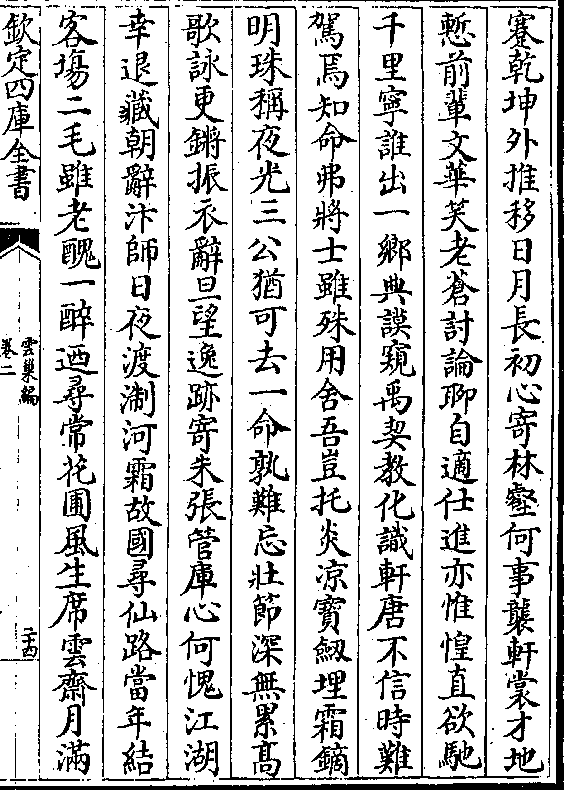 蹇乾坤外推移日月長初心寄林壑何事襲軒裳才地
慙前輩文華笑老蒼討論聊自適仕進亦惟惶直欲馳
千里寧誰出一鄉典謨窺禹契教化識軒唐不信時難
駕焉知命弗將士雖殊用舍吾豈托炎凉寳劔埋霜鏑
明珠稱夜光三公猶可去一命孰難忘壯節深無累髙
歌詠更鏘振衣辭旦望逸跡寄朱張管庫心何愧江湖
幸退藏朝辭汴師日夜渡淛河霜故國尋仙路當年結
客塲二毛雖老醜一醉迺尋常花圃風生席雲齋月滿
欽定四庫全書
雲巢編
卷二
二十四